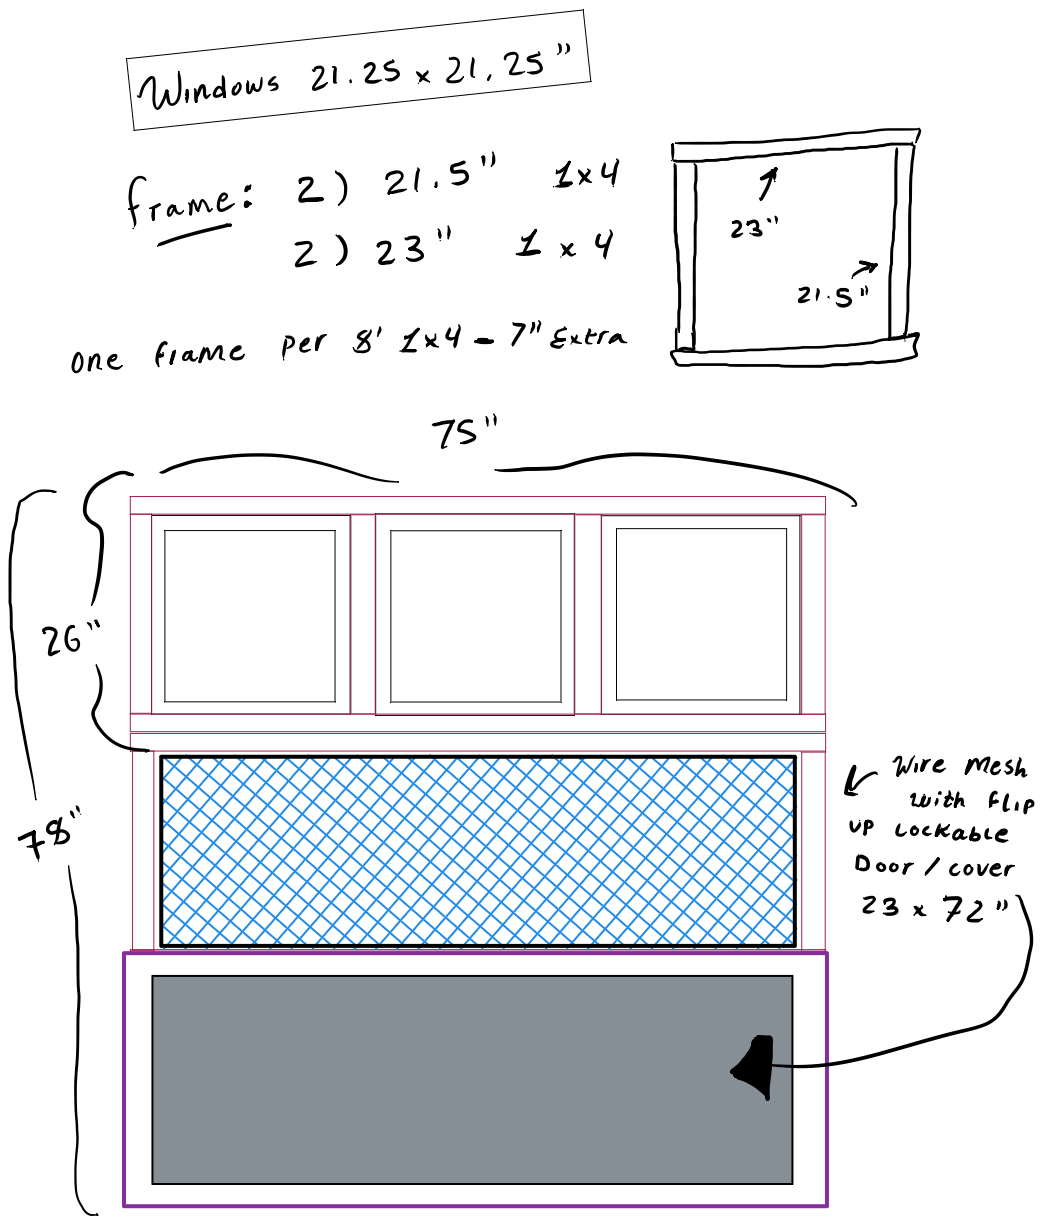 Windows 21.25 x 21.25"
frame: 2) 21.5" 1x4
2) 23" 1 x 4
23"
21.5"
one frame per 8' 1x4 - 7" Extra
75"
26"
78"
Wire Mesh
with flip
up Lockable
Door / cover
23 x 72"